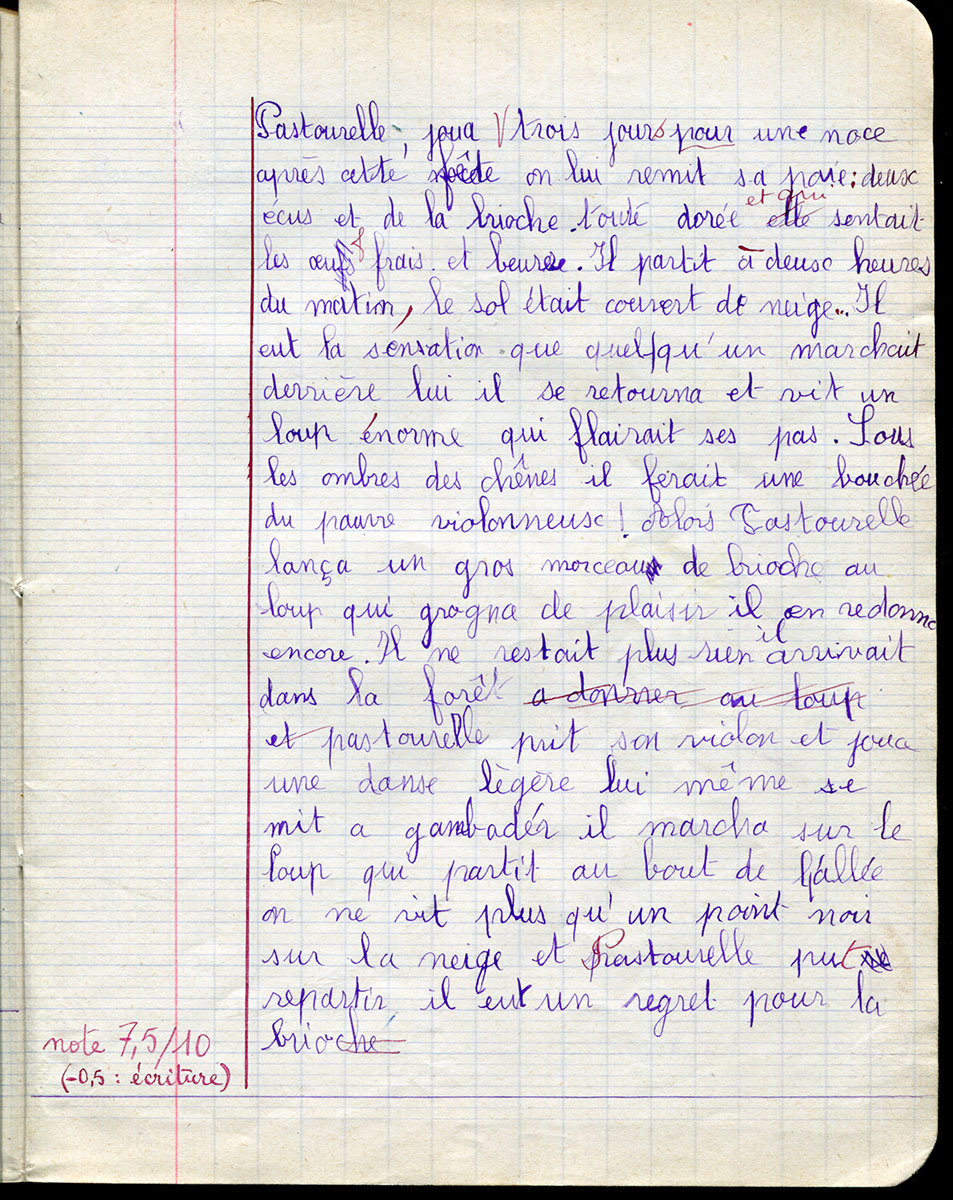 Pastourelle, joua trois jours pour une noce
après cette fête on lui remit sa paie : deux
et qui
écus et de la brioche toute dorée elle sentait
les œufs frais et beure. Il partit à deux heures
du mation, le sol était couvert de neige.. Il
eut la sensation que quelqu'un marchait
derrière lui il se retourna et vit un
loup énorme qui flairait ses pas. Sous
les ombres des chênes il ferait une bouchée
du pauvre violonneux ! Alors Pastourelle
lança un gros morceau de brioche au
loup qui grogna de plaisir il en redonna
encore. Il ne restait plus rien il arrivait
dans la forêt a donner au loup
et pastourelle prit son violon et joua
une danse légère lui même se
mit a gambader il marcha sur le
loup qui partit au bout de l'allée
on ne vit plus qu'un point noir
sur la neige et Pastourelle put
repartir il eut un regret pour la
brioche
note 7,5/10
(-0,5 : écriture)